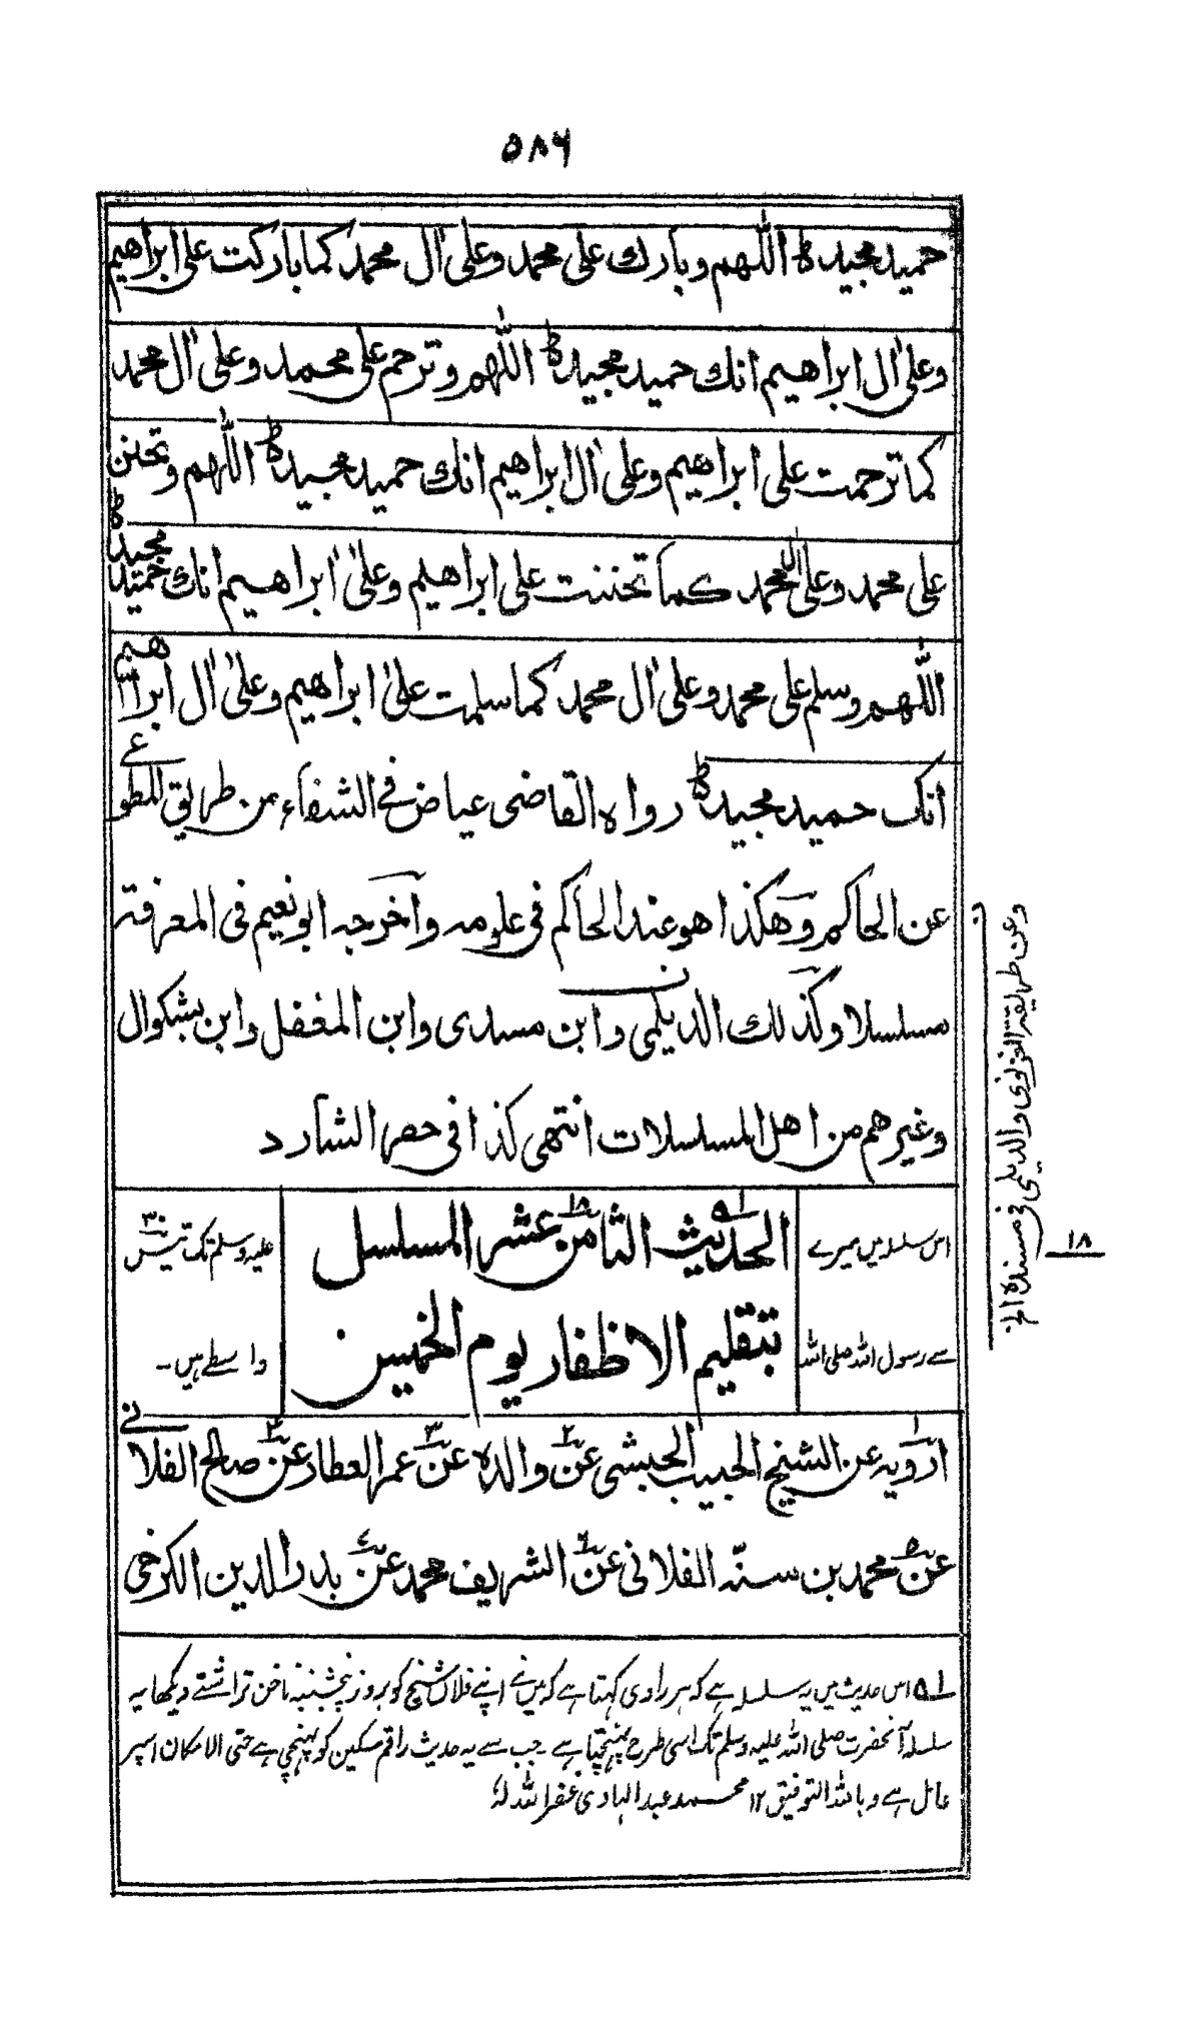 ۵۸۶
حميد مجيد ط اللّٰهم وبارك على محمد وعلى اٰل محمد كما باركت على ابراهيم
وعلى اٰل ابراهيم انك حميد مجيد ط اللّٰهم وترحم على محمد وعلى اٰل محمد
كما ترحمت على ابراهيم وعلى اٰل ابراهيم انك حميد مجيد ط اللّٰهم وتحنن
على محمد وعلى اٰل محمد كما تحننت على ابراهيم وعلىٰ ابراهيم انك حميد مجيد ط
اللّٰهم وسلم على محمد وعلى اٰل محمد كما سلمت علىٰ ابراهيم وعلىٰ اٰل ابراهيم
انك حميد مجيد ط رواه القاضى عياض فے الشفاء من طريق المطوعے
عن الحاكم وهكذا هو عند الحاكم فى علومه وآخرجه ابو نعيم فى المعرفة
مسلسلا وكذلك الديلمى وابن مسدى وابن المغفل وابن بشكوال
وغيرهم من اهل المسلسلات انتهى كذا فى حصر الشارد
وعن طريقة الغزنوى والديلمى فى مسنده الخ
۱۸
الحديث الثامن عشر المسلسل ۱ـه ۱۸
بتقليم الاظفار يوم الخميس
اس سلسلہ میں میرے
سے رسول اللہ صلی اللہ
علیہ وسلم تک تیس ۳۰
واسطے ہیں۔
ارويه ۱ عن الشيخ الحبيب الحبشى عن ۲ والده عن ۳ عمر العطار عن ۴ صالح الفلانے
عن ۵ محمد بن سنّه الفلانى عن ۶ الشريف محمد عن ۷ بدر الدين الكرخى
۱ـه اس حدیث میں یہ سلسلہ ہے کہ ہر راوی کہتا ہے کہ میں نے اپنے فلاں شیخ کو بروز پنچشنبہ ناخن تراشتے دیکھا یہ
سلسلہ آنحضرت صلی اللہ علیہ وسلم تک اسی طرح پہنچتا ہے۔ جب سے یہ حدیث راقم مسکین کو پہنچی ہے حتی الامکان اسپر
عامل ہے وباللہ التوفیق ۱۲ محمد عبدالہادی غفر اللہ لہٗ